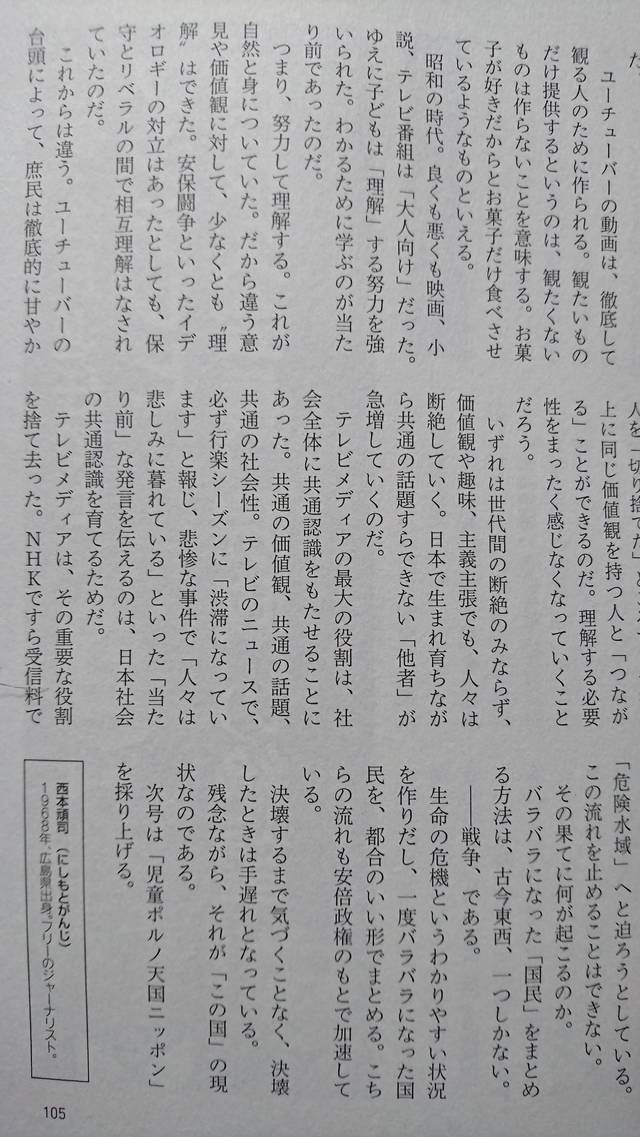 た。
ユーチューバーの動画は、徹底して
観る人のために作られる。観たいもの
だけ提供するというのは、観たくない
ものは作らないことを意味する。お菓
子が好きだからとお菓子だけ食べさせ
ているようなものといえる。
昭和の時代。良くも悪くも映画、小
説、テレビ番組は「大人向け」だった。
ゆえに子どもは「理解」する努力を強
いられた。わかるために学ぶのが当た
り前であったのだ。
つまり、努力して理解する。これが
自然と身についていた。だから違う意
見や価値観に対して、少なくとも〝理
解〟はできた。安保闘争といったイデ
オロギーの対立はあったとしても、保
守とリベラルの間で相互理解はなされ
ていたのだ。
これからは違う。ユーチューバーの
台頭によって、庶民は徹底的に甘やか
人を一切り捨
上に同じ価値観を持つ人と「つなが
る」ことができるのだ。理解する必要
性をまったく感じなくなっていくこと
だろう。
いずれは世代間の断絶のみならず、
価値観や趣味、主義主張でも、人々は
断絶していく。日本で生まれ育ちなが
ら共通の話題すらできない「他者」が
急増していくのだ。
テレビメディアの最大の役割は、社
会全体に共通認識をもたせることに
あった。共通の価値観、共通の話題、
共通の社会性。テレビのニュースで、
必ず行楽シーズンに「渋滞になってい
ます」と報じ、悲惨な事件で「人々は
悲しみに暮れている」といった「当た
り前」な発言を伝えるのは、日本社会
の共通認識を育てるためだ。
テレビメディアは、その重要な役割
を捨て去った。NHKですら受信料で
「危険水域」へと迫ろうとしている。
この流れを止めることはできない。
その果てに何が起こるのか。
バラバラになった「国民」をまとめ
る方法は、古今東西、一つしかない。
──戦争、である。
生命の危機というわかりやすい状況
を作りだし、一度バラバラになった国
民を、都合のいい形でまとめる。こち
らの流れも安倍政権のもとで加速して
いる。
決壊するまで気づくことなく、決壊
したときは手遅れとなっている。
残念ながら、それが「この国」の現
状なのである。
次号は「児童ポルノ天国ニッポン」
を採り上げる。
西本頑司(にしもとがんじ)
1968年、広島県出身。フリーのジャーナリスト。
105